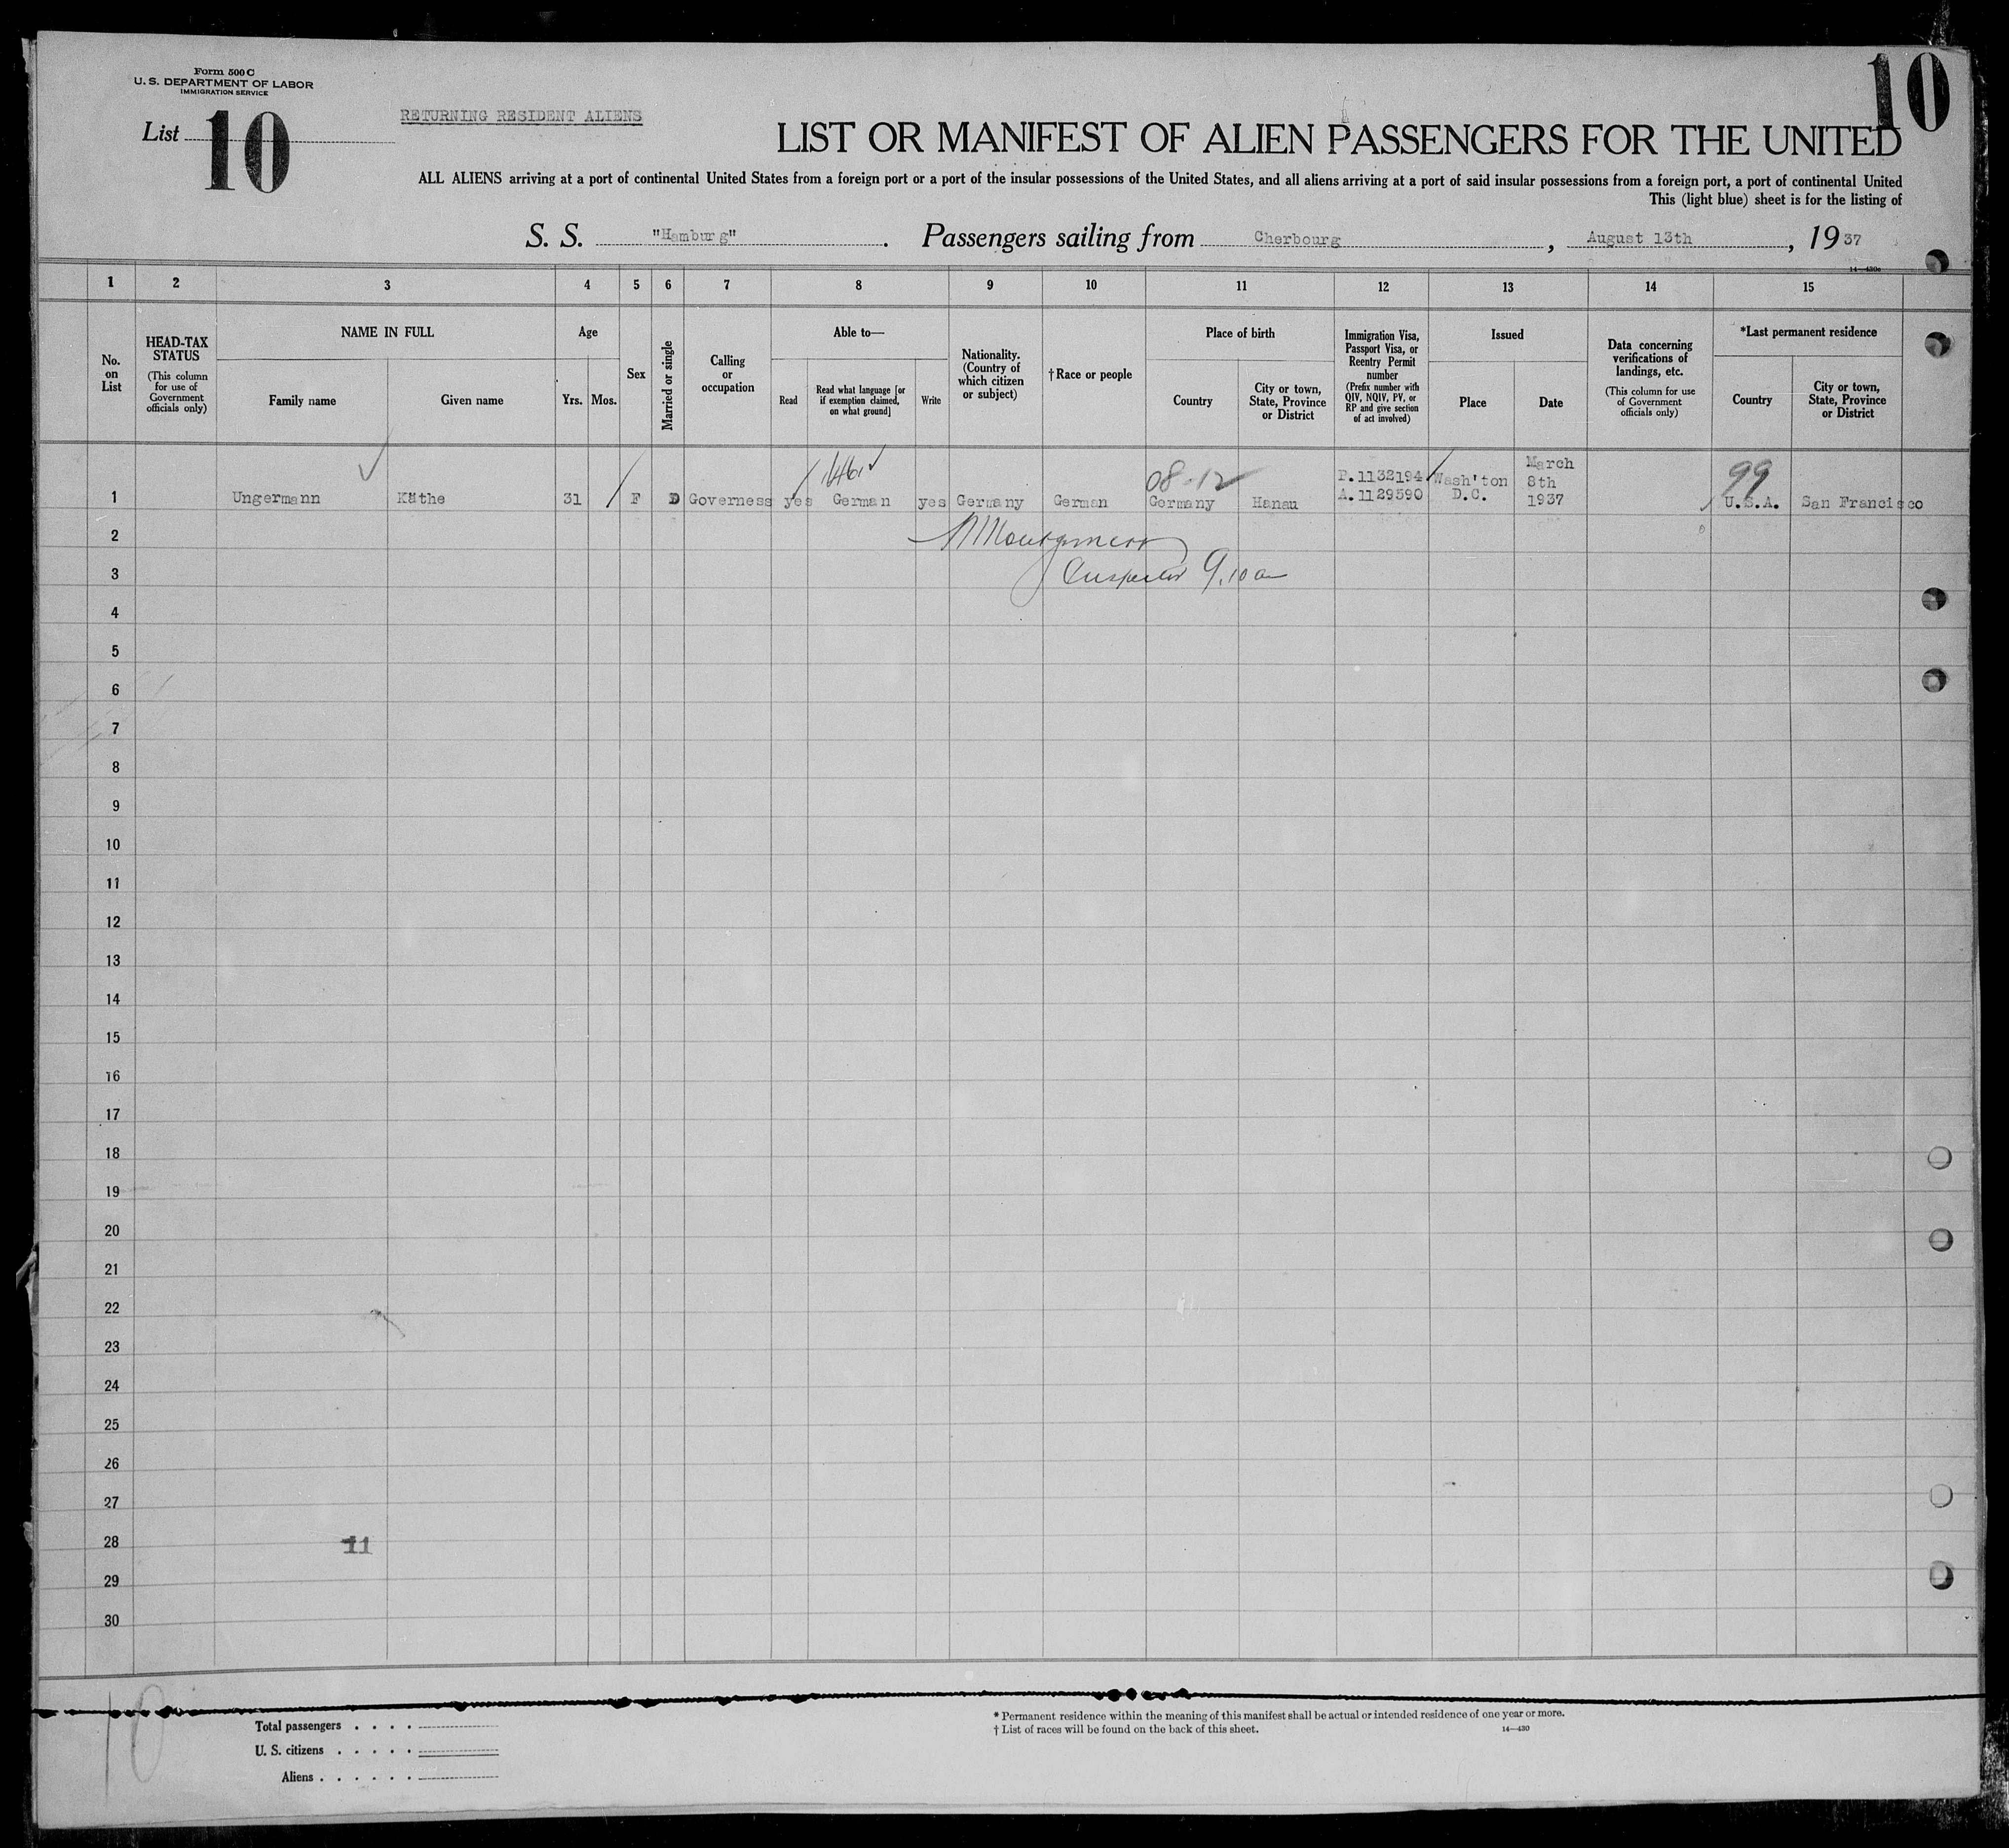 Form 500 C
U. S. DEPARTMENT OF LABOR
IMMIGRATION SERVICE
10
List 10
RETURNING RESIDENT ALIENS
LIST OR MANIFEST OF ALIEN PASSENGERS FOR THE UNITED
ALL ALIENS arriving at a port of continental United States from a foreign port or a port of the insular possessions of the United States, and all aliens arriving at a port of said insular possessions from a foreign port, a port of continental United
This (light blue) sheet is for the listing of
S. S. "Hamburg". Passengers sailing from Cherbourg, August 13th, 1937
14—430c
1 2 3 4 5 6 7 8 9 10 11 12 13 14 15
No. on List
HEAD-TAX STATUS
(This column for use of Government officials only)
NAME IN FULL
Family name
Given name
Age
Yrs. Mos.
Sex
Married or single
Calling or occupation
Able to—
Read
Read what language [or if exemption claimed, on what ground]
Write
Nationality. (Country of which citizen or subject)
†Race or people
Place of birth
Country
City or town, State, Province or District
Immigration Visa, Passport Visa, or Reentry Permit number
(Prefix number with QIV, NQIV, PV, or RP and give section of act involved)
Issued
Place
Date
Data concerning verifications of landings, etc.
(This column for use of Government officials only)
*Last permanent residence
Country
City or town, State, Province or District
08-12 99
1 Ungermann Käthe 31 F D Governess yes German yes Germany German Germany Hanau P.1132194 A.1129590 Wash'ton D.C. March 8th 1937 U.S.A. San Francisco
2 Montgomery
3 Inspector 9.10 am
4
5
6
7
8
9
10
11
12
13
14
15
16
17
18
19
20
21
22
23
24
25
26
27
28 11
29
30
10
Total passengers
U. S. citizens
Aliens
* Permanent residence within the meaning of this manifest shall be actual or intended residence of one year or more.
† List of races will be found on the back of this sheet.
14—430